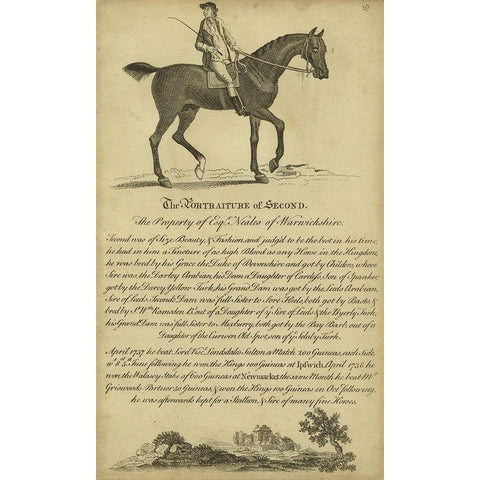 19
The PORTRAITURE of SECOND.
The Property of Esqr. Neales of Warwickshire.
Second was of Size Beauty, & Fashion, and judg'd to be the best in his time,
he had in him a Tincture of as high Blood as any Horse in the Kingdom,
he was bred by his Grace the Duke of Devonshire and got by Childers, whose
Sire was the Darley Arabian, his Dam a Daughter of Careless, Son of Spanker,
got by the Darcy Yellow Turk, his Grand Dam was got by the Leeds Arabian,
Sire of Leeds. Seconds Dam was full Sister to Sore Heels, both got by Basto, &
bred by Sr. Wm. Ramsden Bt. out of a Daughter of ye Sire of Leeds & the Byerly Turk,
his Grand Dam was full Sister to Moxburry, both got by the Bay Barb, out of a
Daughter of the Curwen Old Spot, son of ye Selaby Turk.
April 1737 he beat Lord Visc. Lonsdales Sultan a Match 200 Guineas, each Side,
wt. 8st. June following he won the Kings 100 Guineas at Ipswich, April 1738. he
won the Walasey Stake of 600 Guineas at Newmarket, the same Month he beat Mr.
Griswoods Partner 50 Guineas, & won the Kings 100 Guineas in Oct. follow'g.
he was afterwards kept for a Stallion, & Sire of many fine Horses.